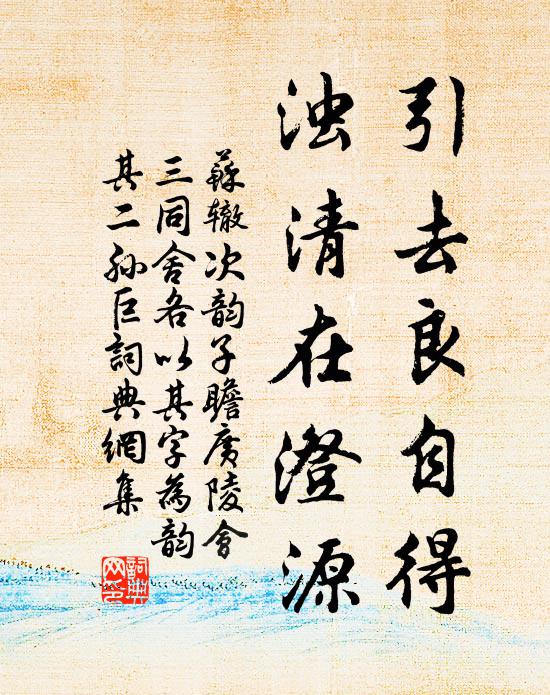 引去良自得
浊清在澄源
蘇辙次韵子瞻廣陵會
三同舍各以其字為韵
其二孙巨詞典網集
詞典
网